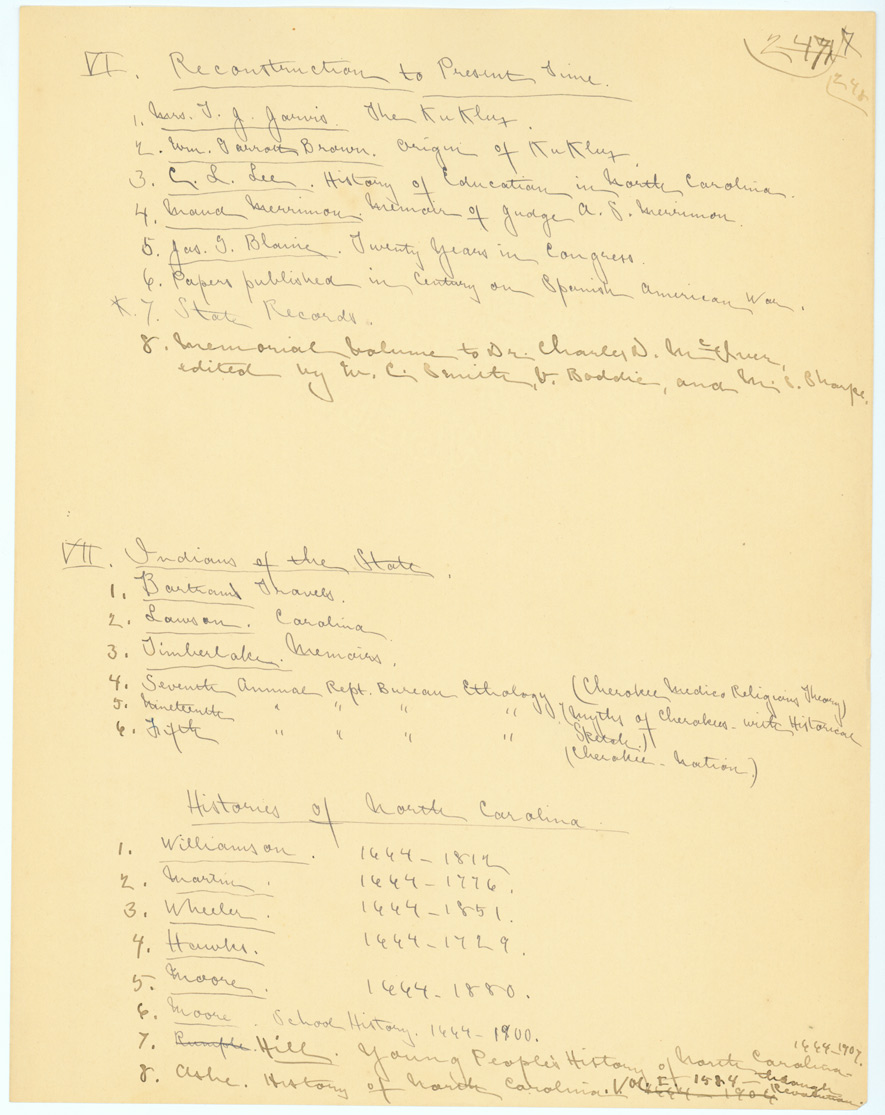 2477
248
VI. Reconstruction to Present Time.
1. Mrs. T. J. Jarvis. The KuKlux.
2. Wm. Garrott Brown. Origin of KuKlux.
3. C. L. Lee. History of Education in North Carolina.
4. Maud Merrimon. Memoir of Judge A. S. Merrimon
5. Jas. G. Blaine. Twenty Years in Congress.
6. Papers published in Century on Spanish American War.
X. 7. State Records.
8. Memorial Volume to Dr. Charles D. McIver,
edited by W. C. Smith, V. Boddie, and M. S. Sharpe.
VII. Indians of the State.
1. Bartram Travels.
2. Lawson. Carolina
3. Timberlake. Memoirs.
4. Seventh Annual Rept. Bureau Ethology (Cherokee Medico Religious Theory)
5. Nineteenth " " " " (Myths of Cherokees - with Historical
Sketch.)
6. Fifth " " " " (Cherokee - Nation.)
Histories of North Carolina
1. Williamson. 1444-1812
2. Martin. 1444-1776.
3. Wheeler. 1444-1851.
4. Hawks. 1444-1729.
5. Moore. 1444-1880.
6. Moore. School History. 1444-1900.
7. Rumple. Hill. Young People's History of North Carolina 1444-1907.
8. Ashe. History of North Carolina. Vol. I. 1584- through Revolution.
1444-1904